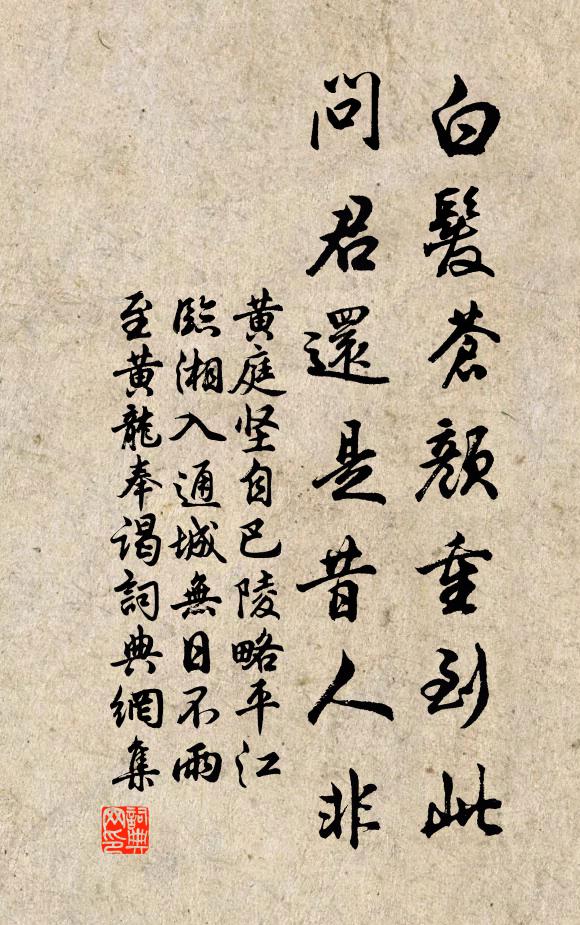 白髮蒼顏重到此
問君還是昔人非
黃庭坚自巴陵略平江
臨湘入通城無日不雨
至黃龍奉谒詞典網集
詞典
网印